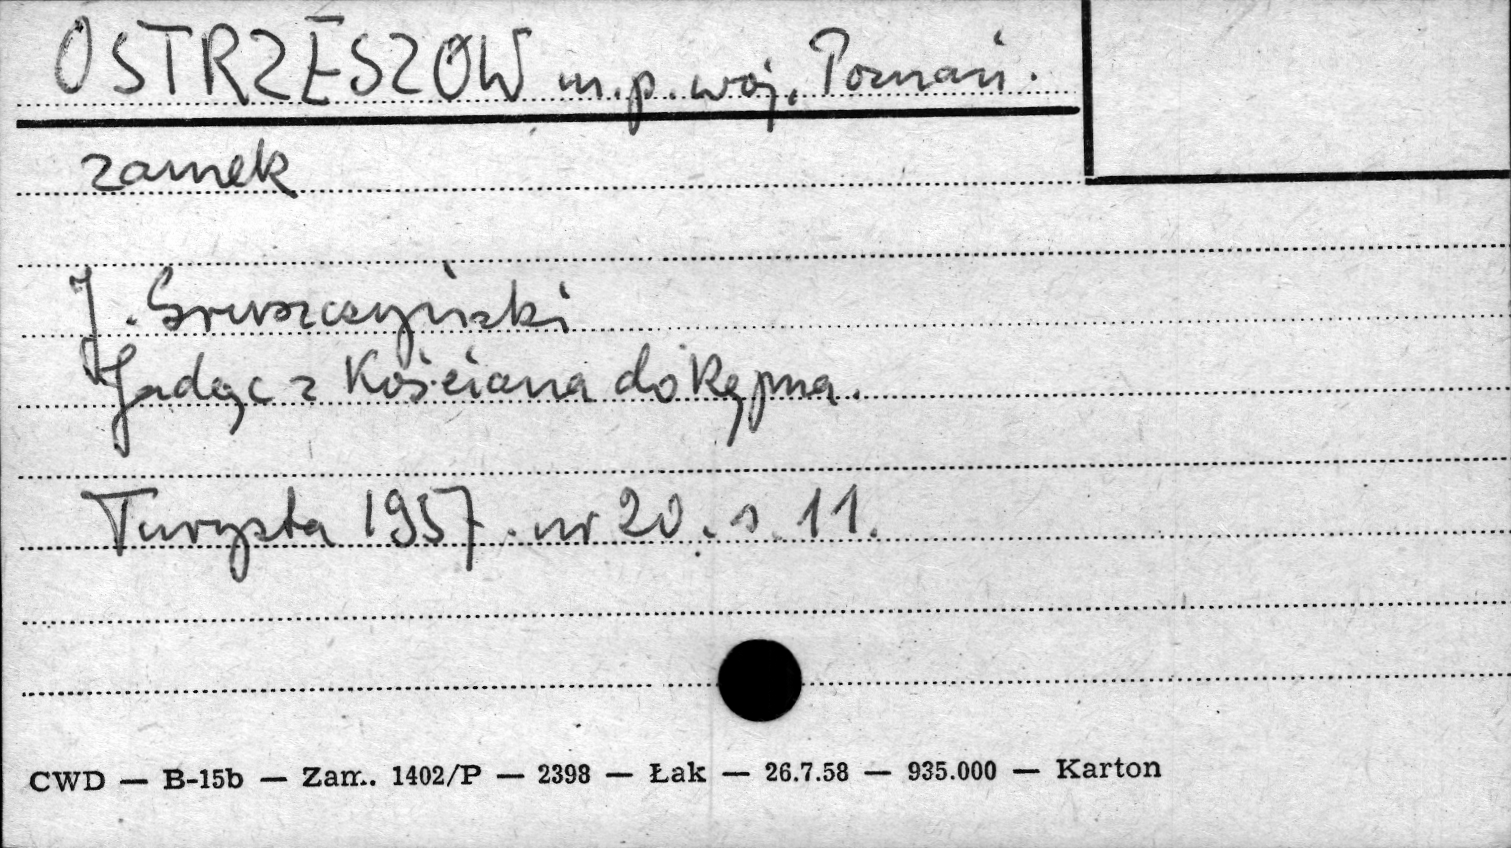 OSTRZESZÓW m.p. woj. Poznań.
zamek
J. Gruszczyński
Jadąc z Kościana do Kępna.
Turysta 1957. nr 20. s. 11.
CWD — B-15b — Zam.. 1402/P — 2398 — Łak — 26.7.58 — 935.000 — Karton